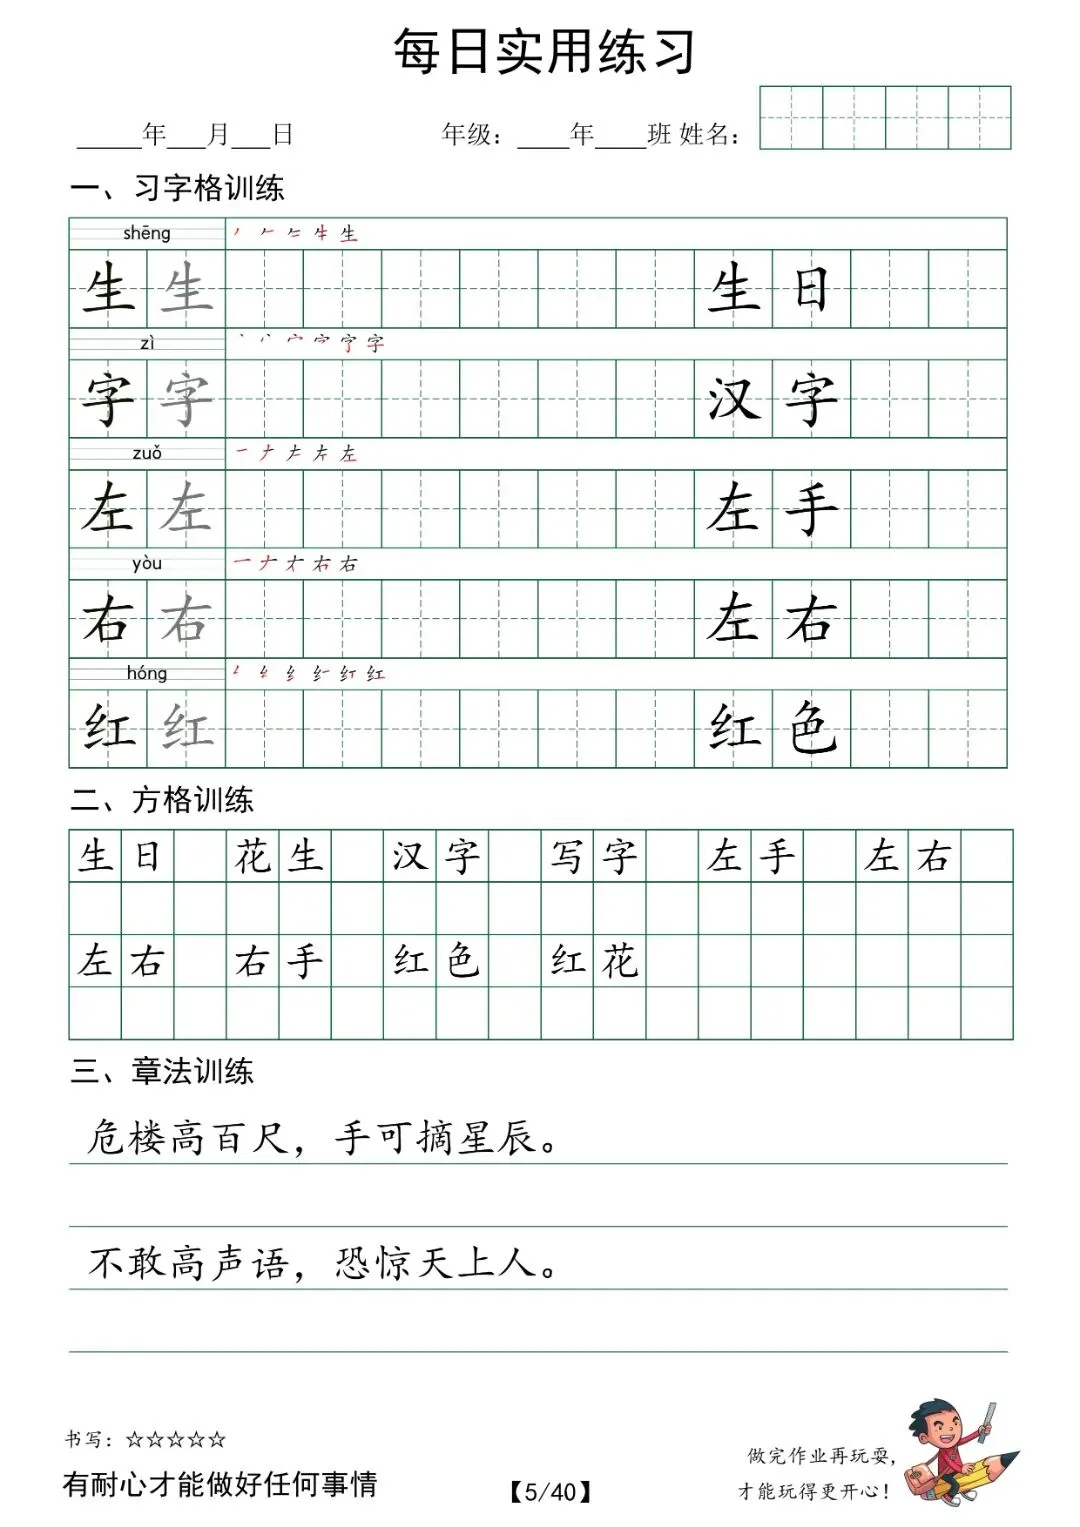 每日实用练习
_____年___月___日 年级：____年____班 姓名：
一、习字格训练
shēng 生
生 生 生 日
zì 字
字 字 汉 字
zuǒ 左
左 左 左 手
yòu 右
右 右 左 右
hóng 红
红 红 红 色
二、方格训练
生 日 花 生 汉 字 写 字 左 手 左 右
左 右 右 手 红 色 红 花
三、章法训练
危楼高百尺，手可摘星辰。
不敢高声语，恐惊天上人。
书写：☆☆☆☆☆
有耐心才能做好任何事情
【5/40】
做完作业再玩耍，
才能玩得更开心！